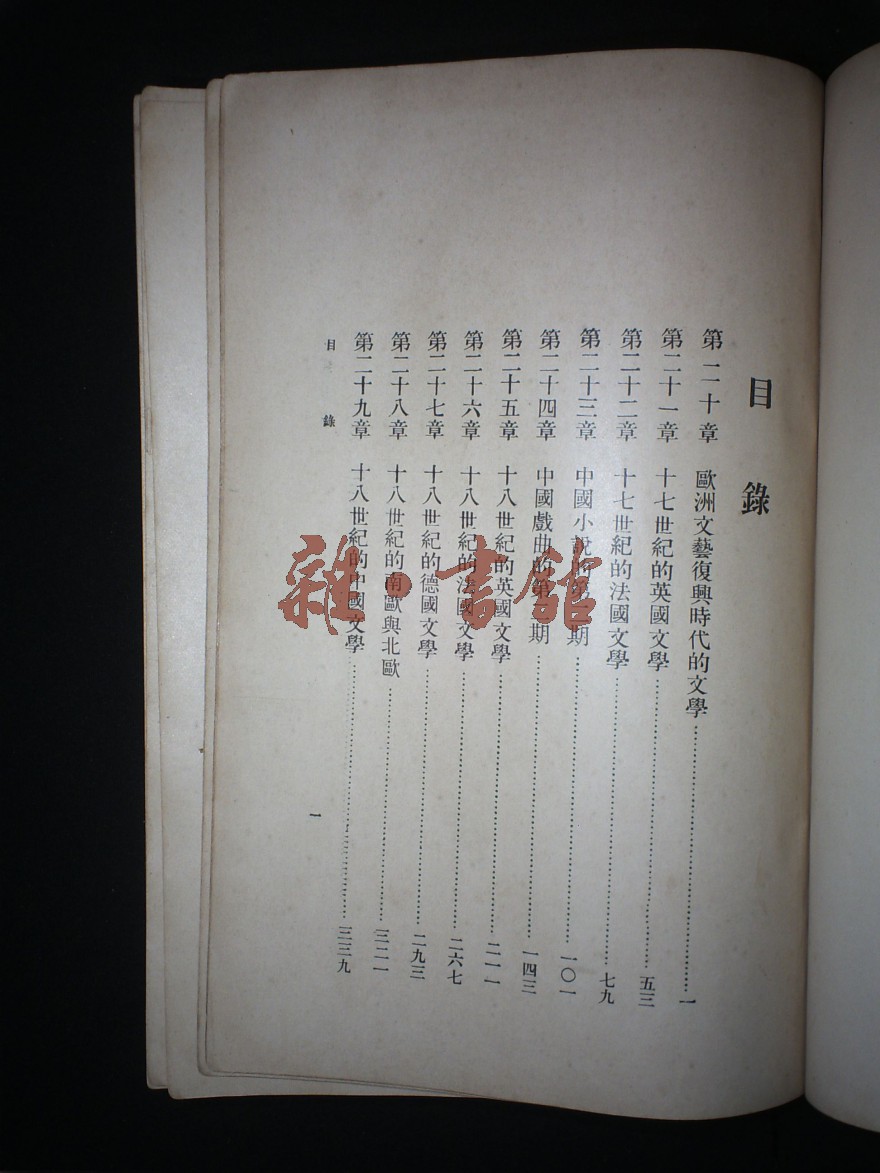 目錄
第二十章 歐洲文藝復興時代的文學……一
第二十一章 十七世紀的英國文學……五三
第二十二章 十七世紀的法國文學……七九
第二十三章 中國小說的第二期……一〇一
第二十四章 中國戲曲的第二期……一四三
第二十五章 十八世紀的英國文學……二一一
第二十六章 十八世紀的法國文學……二六七
第二十七章 十八世紀的德國文學……二九三
第二十八章 十八世紀的南歐與北歐……三二一
第二十九章 十八世紀的中國文學……三三九
目錄
一
雜·書館